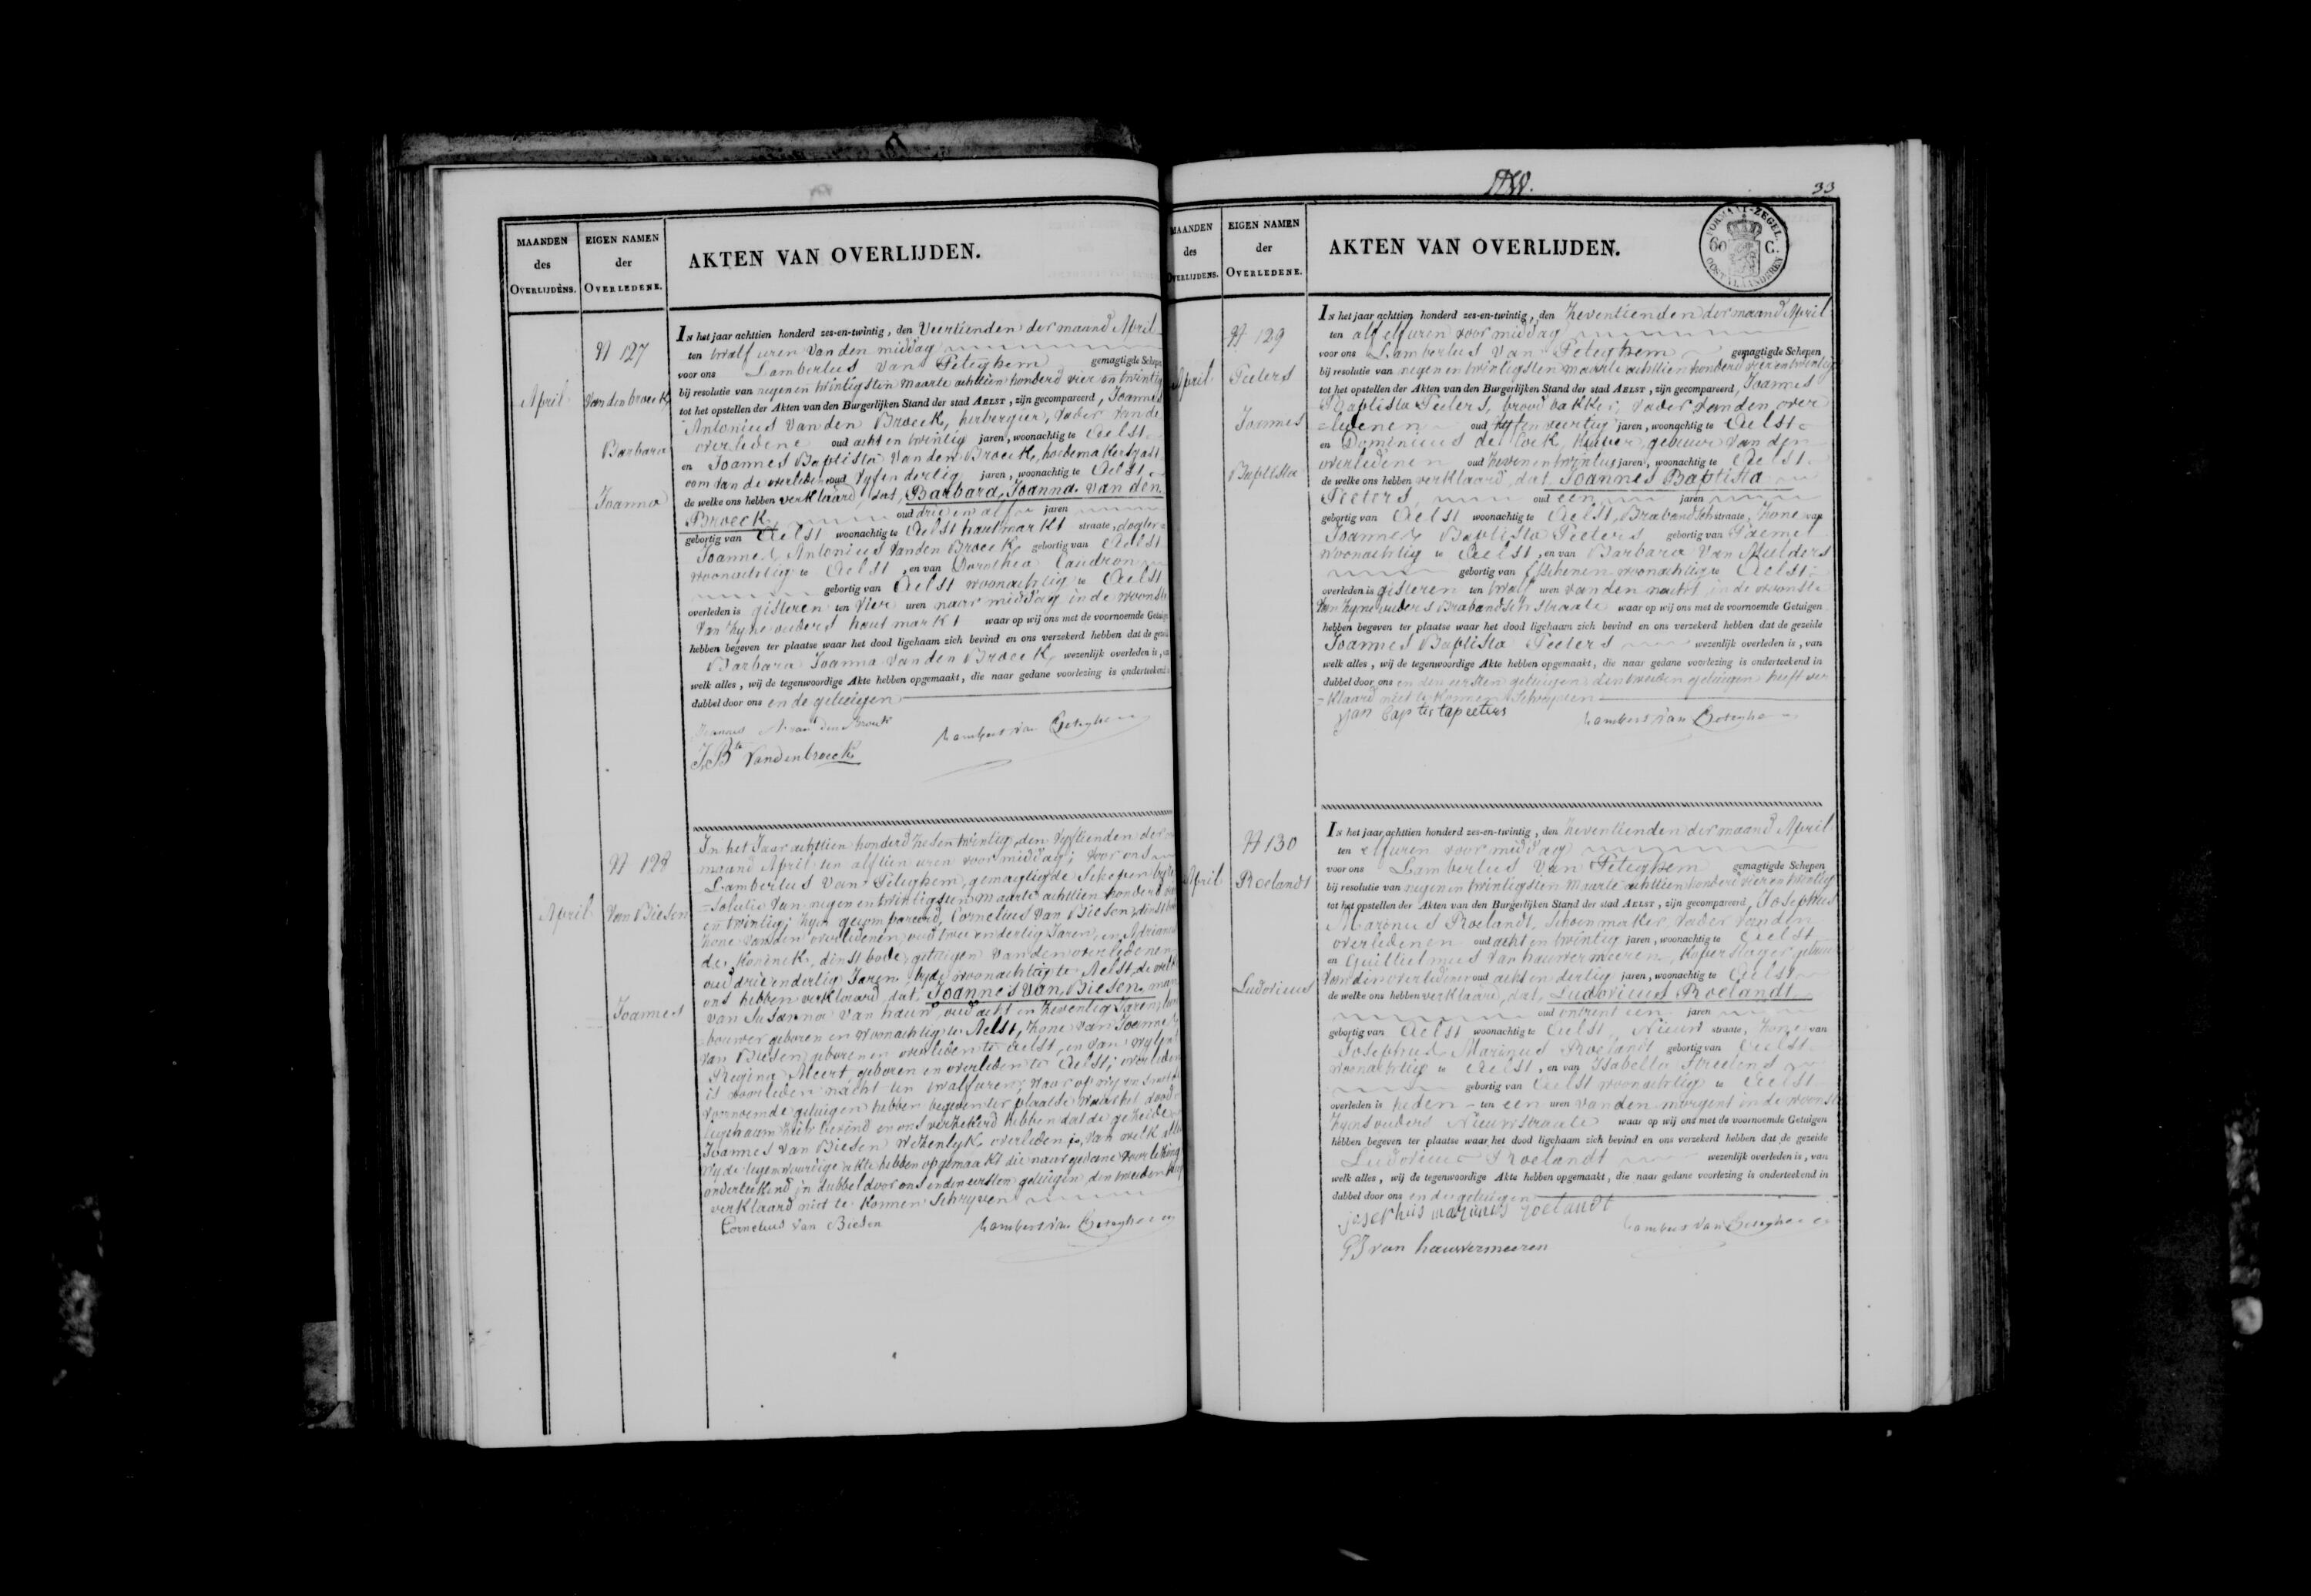 MAANDEN
des
OVERLIJDENS.
EIGEN NAMEN
der
OVERLEDENE.
AKTEN VAN OVERLIJDEN.
N 127
April
Van den broeck
Barbara
Joanna
In het jaar achttien honderd zes-en-twintig, den Veertienden der maand April
ten twalf uren van den middag
voor ons Lambertus Van Peteghem gemagtigde Schepen
bij resolutie van negen en twintigsten maarte achttien honderd vier en twintig
tot het opstellen der Akten van den Burgerlijken Stand der stad AELST, zijn gecompareerd, Joannes
Antonius Van den Broeck, herbergier, vader van de
overledene oud acht en twintig jaren, woonachtig te Aelst
en Joannes Baptista Van den Broeck, hoedemakersgast
oom van de overledene oud vyf en dertig jaren, woonachtig te Aelst
de welke ons hebben verklaard, dat, Barbara Joanna Van den
Broeck, oud drie en alf jaren
gebortig van Aelst woonachtig te Aelst hautmarkt straate, dogter
Joannes Antonius Van den Broeck gebortig van Aelst
woonachtig te Aelst, en van Dorothea Caudron
gebortig van Aelst woonachtig te Aelst
overleden is gisteren ten vier uren naar middag in de woonste
van hyne ouders haut markt waar op wij ons met de voornoemde Getuigen
hebben begeven ter plaatse waar het dood ligchaam zich bevind en ons verzekerd hebben dat de gezeide
Barbara Joanna Van den Broeck wezenlijk overleden is, van
welk alles, wij de tegenwoordige Akte hebben opgemaakt, die naar gedane voorlezing is onderteekend in
dubbel door ons en de getuigen
J Bte Vandenbroeck
Lambert van Peteghem
N 128
April
Van Biesen
Joannes
In het Jaar achttien honderd Zes en twintig, den Vyftienden der
maand April ten alf tien uren voor middag; voor ons
Lambertus Van Peteghem, gemagtigde Schepen by re
=solutie Van negen en twintigsten maarte achttien honderd vier
en twintig; Zyn gecompareerd, Cornelius Van Biesen, dienstbode
Zone van den overledenen, oud twee en dertig Jaren, en Adrianus
de Koninck, dinst bode, getuigen van den overledenen
oud drie en dertig Jaren, byde woonachtig te Aelst, de welke
ons hebben verklaard, dat, Joannes Van Biesen, man
van Susanna Van hauw, oud acht en Zeventig Jaren, land
bouwer geboren en woonachtig te Aelst, Zone van Joannes
Van Biesen geboren en overleden te Aelst, en van wylent
Regina Meert, geboren en overleden te Aelst; overleden
is voorleden nacht ten twalf uren, waar op wy ons met de
voornoemde getuigen hebben begeven ter plaatse waar het dood
ligchaam zich bevind en ons verzekerd hebben dat de gezeide
Joannes Van Biesen wezenlyk overleden is, van welk alles
wy de tegenwoordige akte hebben opgemaakt die naar gedane voorlezing
onderteekend in dubbel door ons en den eersten getuigen, den tweeden heeft
verklaard niet te konnen schryven
Cornelius Van Biesen
Lambert van Peteghem
33
MAANDEN
des
OVERLIJDENS.
EIGEN NAMEN
der
OVERLEDENE.
AKTEN VAN OVERLIJDEN.
FORMAAT-ZEGEL
60 C.
OOST VLAANDEREN
N 129
April
Peeters
Joannes
Baptista
In het jaar achttien honderd zes-en-twintig, den Zeventienden der maand April
ten alf elf uren voor middag
voor ons Lambertus Van Peteghem gemagtigde Schepen
bij resolutie van negen en twintigsten maarte achttien honderd vier en twintig
tot het opstellen der Akten van den Burgerlijken Stand der stad AELST, zijn gecompareerd, Joannes
Baptista Peeters, brood bakker, vader van den over
=ledenen oud vyf en veertig jaren, woonachtig te Aelst
en Dominicus de Cock, gebuur van den
overledenen oud Zeven en twintig jaren, woonachtig te Aelst
de welke ons hebben verklaard, dat, Joannes Baptista
Peeters, oud een jaren
gebortig van Aelst woonachtig te Aelst, Brabandsch straate, Zone van
Joannes Baptista Peeters gebortig van Paemel
woonachtig te Aelst, en van Barbara Van Mulders
gebortig van Esschenen woonachtig te Aelst
overleden is gisteren ten twalf uren van den nacht in de woonste
van Zyne ouders Brabandsch straate waar op wij ons met de voornoemde Getuigen
hebben begeven ter plaatse waar het dood ligchaam zich bevind en ons verzekerd hebben dat de gezeide
Joannes Baptista Peeters wezenlijk overleden is, van
welk alles, wij de tegenwoordige Akte hebben opgemaakt, die naar gedane voorlezing is onderteekend in
dubbel door ons en den eersten getuigen den tweeden getuigen heeft ver
=klaard niet te konnen Schryven
Jan baptista peeters
Lambert van Peteghem
N 130
April
Roelandt
Ludovicus
In het jaar achttien honderd zes-en-twintig, den Zeventienden der maand April
ten elf uren voor middag
voor ons Lambertus Van Peteghem gemagtigde Schepen
bij resolutie van negen en twintigsten maarte achttien honderd vier en twintig
tot het opstellen der Akten van den Burgerlijken Stand der stad AELST, zijn gecompareerd, Josephus
Marinus Roelandt, Schoenmaker, Vader Van den
overledenen oud acht en twintig jaren, woonachtig te Aelst
en Guillielmus Van hauwermeeren, Koperslager gebuur
van den overledenen oud acht en dertig jaren, woonachtig te Aelst
de welke ons hebben verklaard, dat, Ludovicus Roelandt
oud ontrent een jaren
gebortig van Aelst woonachtig te Aelst, Nieuw straate, Zone van
Josephus Marinus Roelandt gebortig van Aelst
woonachtig te Aelst, en van Isabella Streelens
gebortig van Aelst woonachtig te Aelst
overleden is heden ten een uren van den morgent in de woonst
Zyns ouders Nieuwstraate waar op wij ons met de voornoemde Getuigen
hebben begeven ter plaatse waar het dood ligchaam zich bevind en ons verzekerd hebben dat de gezeide
Ludovicus Roelandt wezenlijk overleden is, van
welk alles, wij de tegenwoordige Akte hebben opgemaakt, die naar gedane voorlezing is onderteekend in
dubbel door ons en de getuigen
josephus marinus roelandt
Lambert van Peteghem
GJ van hauwermeeren